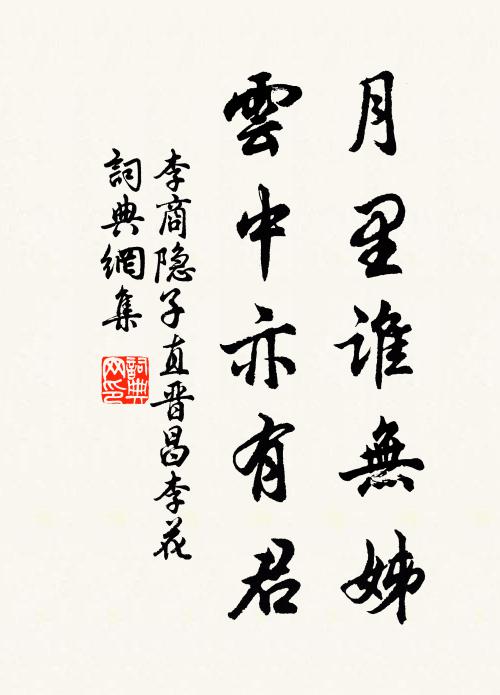 月里誰無姊
雲中亦有君
李商隐子直晋昌李花
詞典網集
詞典
网印